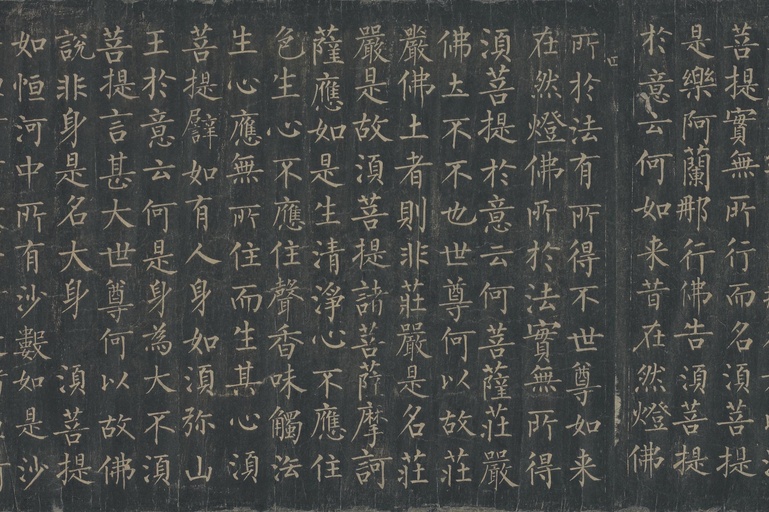 菩提實無所行而名須菩提
是樂阿蘭那行佛告須菩提
於意云何如来昔在然燈佛
所於法有所得不世尊如来
在然燈佛所於法實無所得
須菩提於意云何菩薩莊嚴
佛土不不也世尊何以故莊
嚴佛土者則非莊嚴是名莊
嚴是故須菩提諸菩薩摩訶
薩應如是生清淨心不應住
色生心不應住聲香味觸法
生心應無所住而生其心須
菩提譬如有人身如須弥山
王於意云何是身為大不須
菩提言甚大世尊何以故佛
說非身是名大身 須菩提
如恒河中所有沙數如是沙